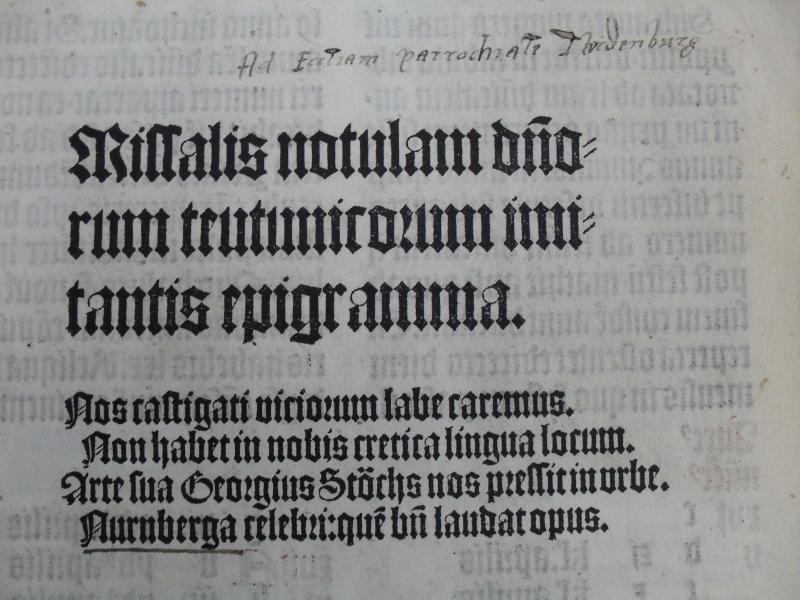 Ad Eccliam parrochiale Neidenburg
Missalis notulam dño⸗
rum teutunicorum imi⸗
tantis epigramma.
Nos castigati viciorum labe caremus.
Non habet in nobis cretica lingua locum.
Arte sua Georgius Stöchs nos pressit in orbe.
Nurnberga celebri: quē bñ laudat opus.